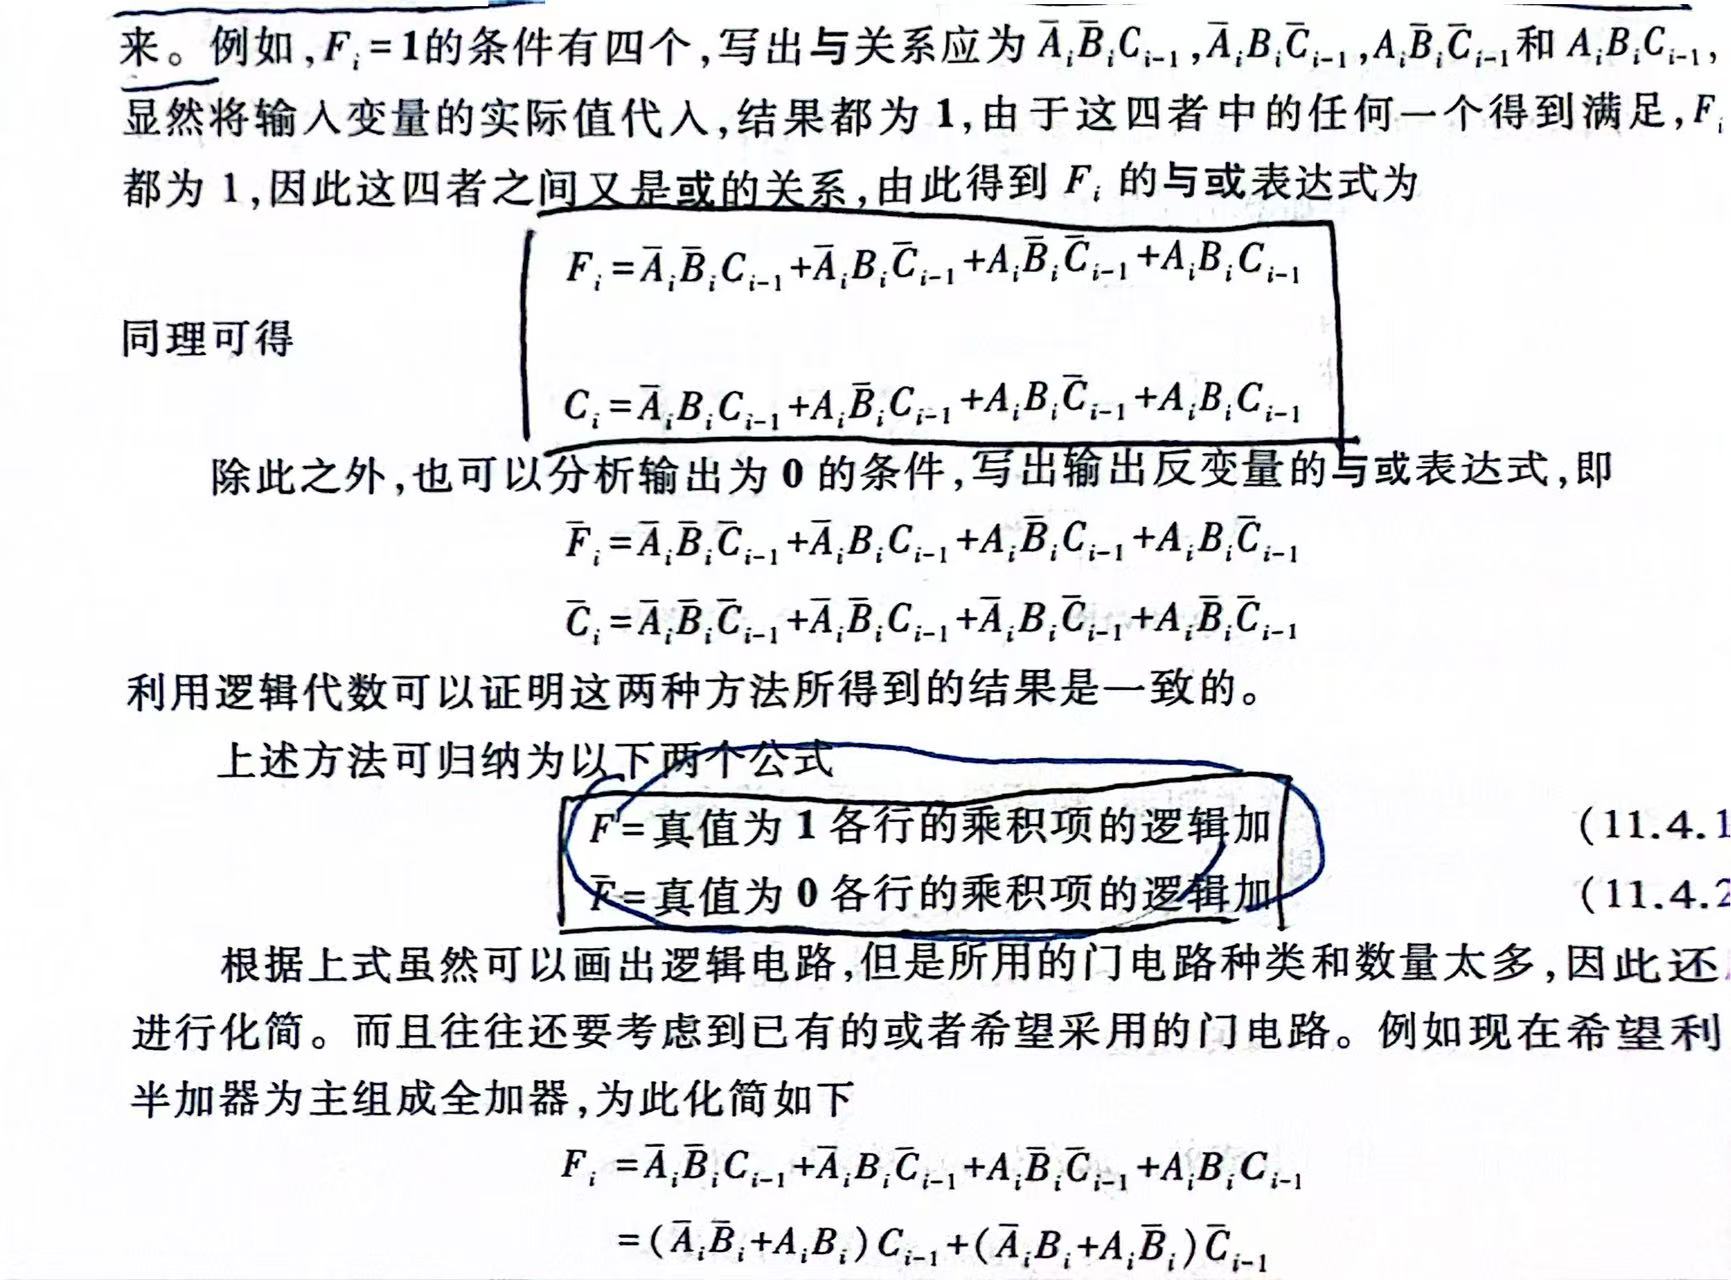 来。例如,Fᵢ=1的条件有四个,写出与关系应为 A̅ᵢB̅ᵢCᵢ₋₁,A̅ᵢBᵢC̅ᵢ₋₁,AᵢB̅ᵢC̅ᵢ₋₁和 AᵢBᵢCᵢ₋₁,
显然将输入变量的实际值代入,结果都为 1,由于这四者中的任何一个得到满足,Fᵢ
都为 1,因此这四者之间又是或的关系,由此得到 Fᵢ 的与或表达式为
Fᵢ=A̅ᵢB̅ᵢCᵢ₋₁+A̅ᵢBᵢC̅ᵢ₋₁+AᵢB̅ᵢC̅ᵢ₋₁+AᵢBᵢCᵢ₋₁
同理可得
Cᵢ=A̅ᵢBᵢCᵢ₋₁+AᵢB̅ᵢCᵢ₋₁+AᵢBᵢC̅ᵢ₋₁+AᵢBᵢCᵢ₋₁
除此之外,也可以分析输出为 0 的条件,写出输出反变量的与或表达式,即
F̅ᵢ=A̅ᵢB̅ᵢC̅ᵢ₋₁+A̅ᵢBᵢCᵢ₋₁+AᵢB̅ᵢCᵢ₋₁+AᵢBᵢC̅ᵢ₋₁
C̅ᵢ=A̅ᵢB̅ᵢC̅ᵢ₋₁+A̅ᵢB̅ᵢCᵢ₋₁+A̅ᵢBᵢC̅ᵢ₋₁+AᵢB̅ᵢC̅ᵢ₋₁
利用逻辑代数可以证明这两种方法所得到的结果是一致的。
上述方法可归纳为以下两个公式
F=真值为 1 各行的乘积项的逻辑加 (11.4.1
F̅=真值为 0 各行的乘积项的逻辑加 (11.4.2
根据上式虽然可以画出逻辑电路,但是所用的门电路种类和数量太多,因此还
进行化简。而且往往还要考虑到已有的或者希望采用的门电路。例如现在希望利
半加器为主组成全加器,为此化简如下
Fᵢ=A̅ᵢB̅ᵢCᵢ₋₁+A̅ᵢBᵢC̅ᵢ₋₁+AᵢB̅ᵢC̅ᵢ₋₁+AᵢBᵢCᵢ₋₁
=(A̅ᵢB̅ᵢ+AᵢBᵢ)Cᵢ₋₁+(A̅ᵢBᵢ+AᵢB̅ᵢ)C̅ᵢ₋₁